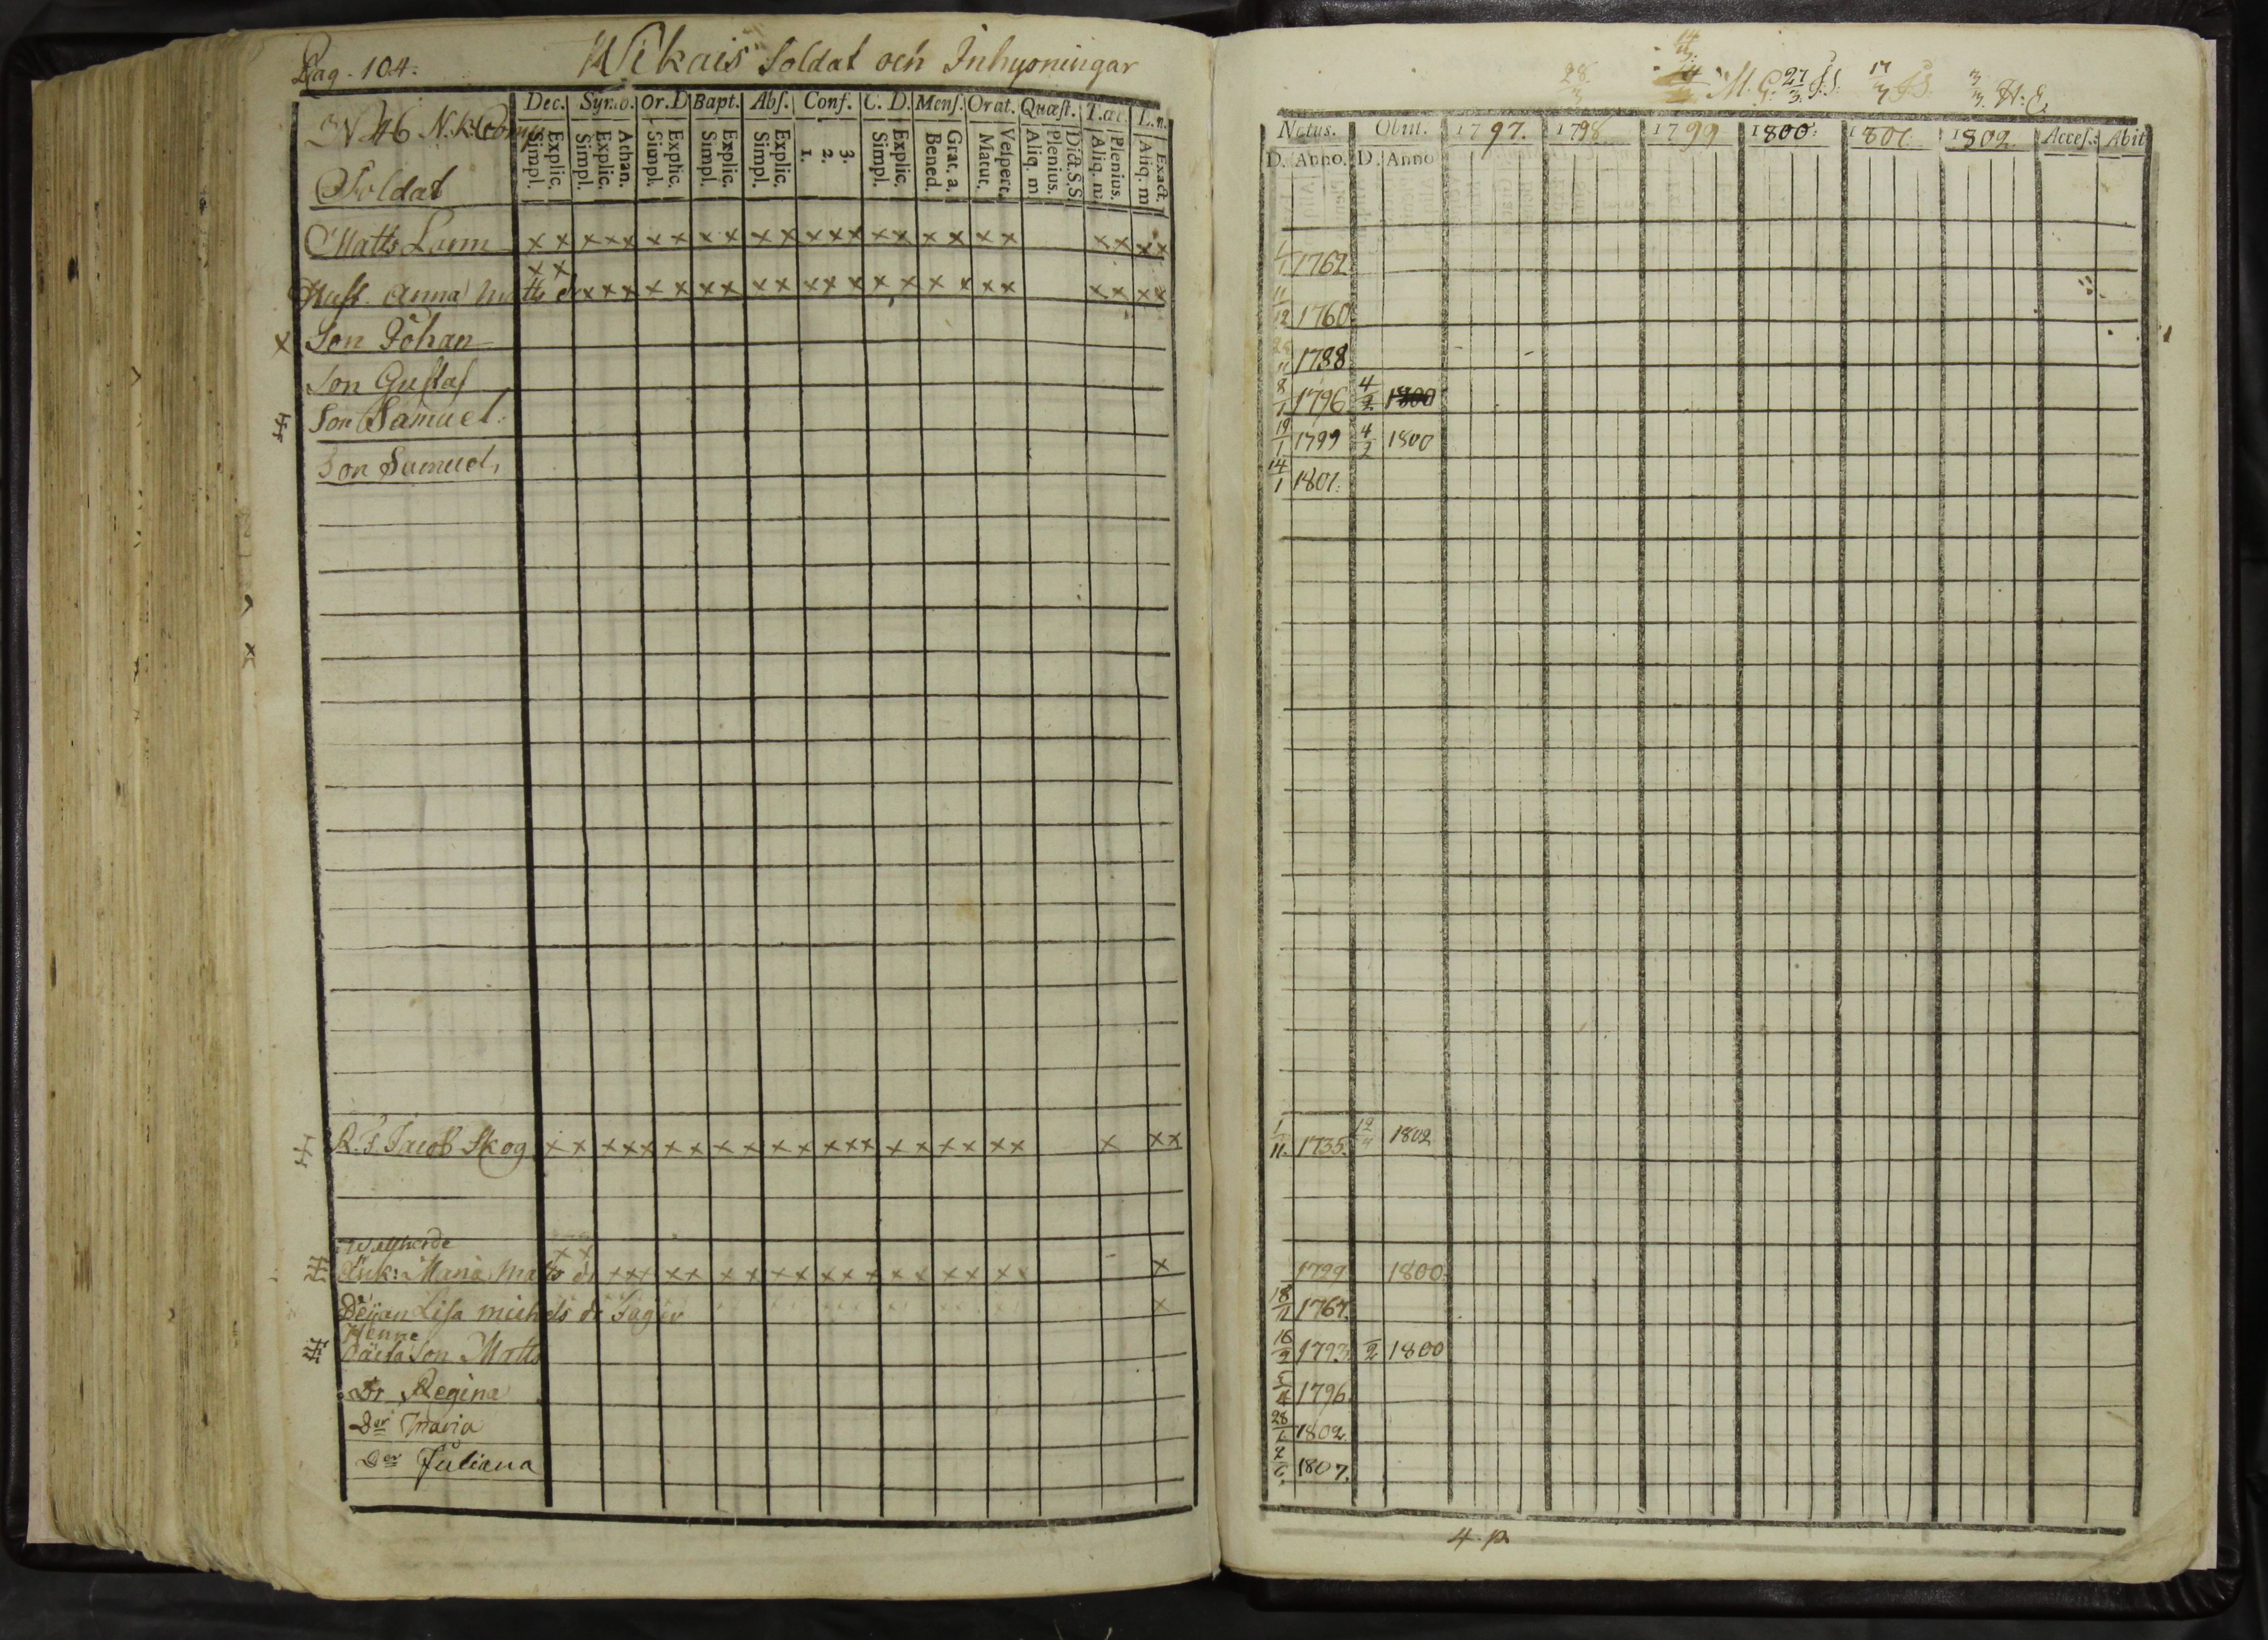 Pag. 104. Wikais Soldat och Inhysningar
N. 46 N.k:
Soldat
Dec. Symb. Or. D Bapt. Abſ. Conf. C. D. Menſ. Orat. Quæſt. T.œc. L.n.
Simpl. Explic. Simpl. Explic. Athan. Simpl. Explic. Simpl. Explic. Simpl. Explic. 1. 2. 3. Simpl. Explic. Bened. Grat. a. Matut. Veſpert. Aliq. m Plenius. Dict.S.S Aliq. m Plenius. Aliq. m Exact.
Matts Lorm x x x x x x x x x x x x x x x x x x x x x x x x
x x
Huſt. Anna Matts dr x x x x x x x x x x x x x x x x x x x x x x
x Son Johan
Son Guſtaf
Son Samuel.
Son Samuel,
R. S. Jacob Skog x x x x x x x x x x x x x x x x x x x x x x x
Wallherde
x x
Änk: Maria Matts dr x x x x x x x x x x x x x x x x x x
Dejan Liſa michels dr Jäger x
Henne
oäcta Son Matts
Dr Regina
Der Maria
Der Juliana
28/3 14/3 M. G. 27/3 J.S. 17/3 J.S. 3/3 H. E.
Natus. Obiit. 1797. 1798. 1799 1800. 1801. 1802. Acceſ. Abit
D. Anno. D. Anno
1/1 1762
11/12 1760
1788
8/1 1796 4/2
19/1 1799 4/2 1800
14/1 1801.
1/11. 1735. 1802
1729 1800.
18/11 1767.
16/9 1793. /2 1800
1796.
28/1 1802.
2/6. 1807.
4. p